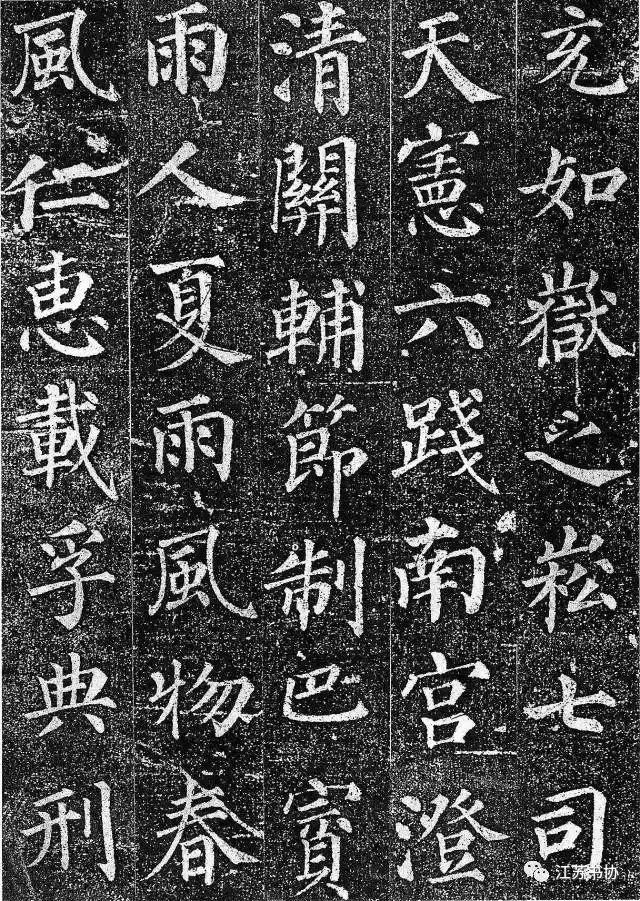 充如嶽之崧七司
天憲六踐南宮澄
清關輔節制巴賓
雨人夏雨風物春
風仁惠載孚典刑
江苏书协